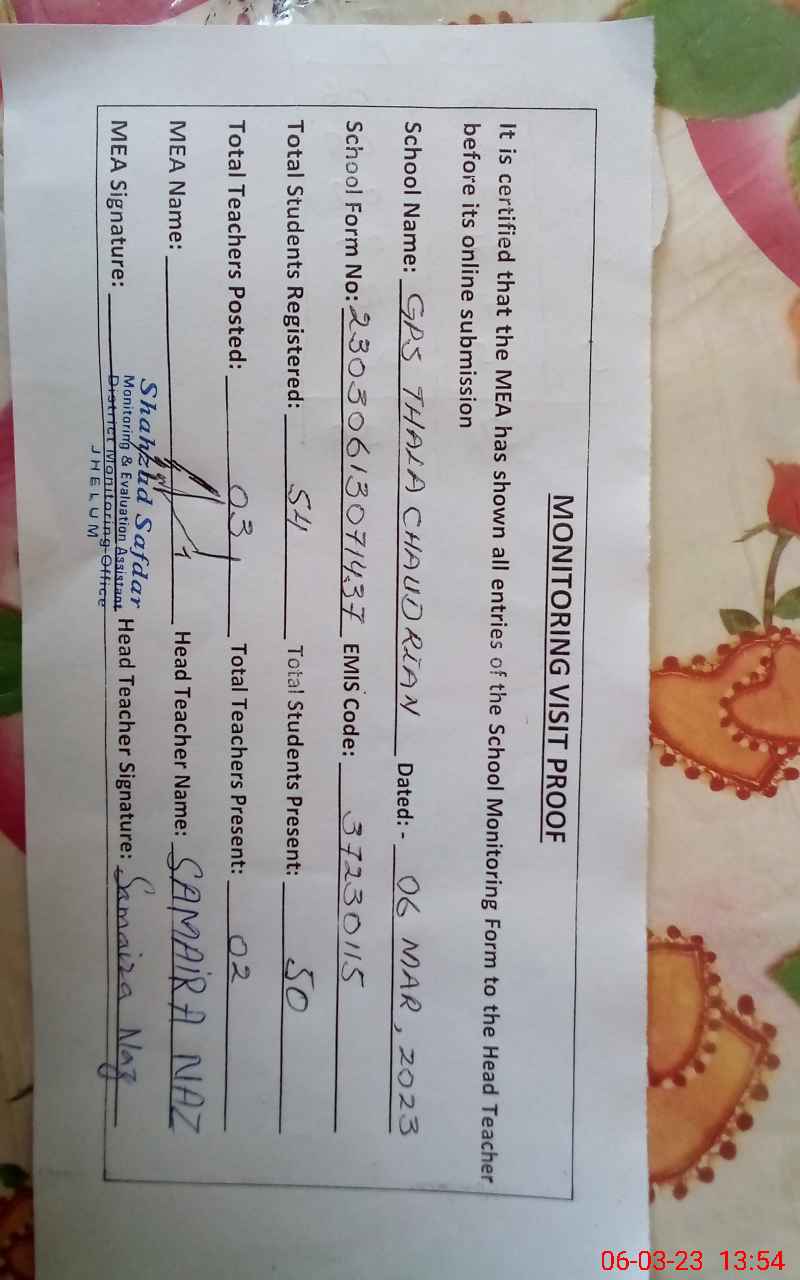 MONITORING VISIT PROOF
It is certified that the MEA has shown all entries of the School Monitoring Form to the Head Teacher
before its online submission
School Name: GPS THALA CHAUDRIAN Dated:- 06 MAR, 2023
School Form No: 23030613071437 EMIS Code: 37230115
Total Students Registered: 54 Total Students Present: 50
Total Teachers Posted: 03 Total Teachers Present: 02
MEA Name: Head Teacher Name: SAMAIRA NAZ
MEA Signature: Head Teacher Signature: Samaira Naz
Shahzad Safdar
Monitoring & Evaluation Assistant
District Monitoring Office
JHELUM
06-03-23 13:54